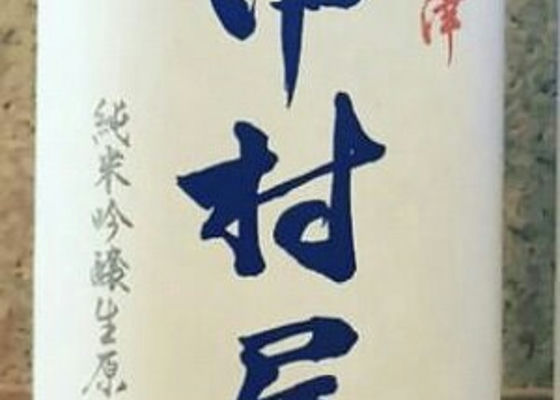 津
中村屋
純米吟醸生原